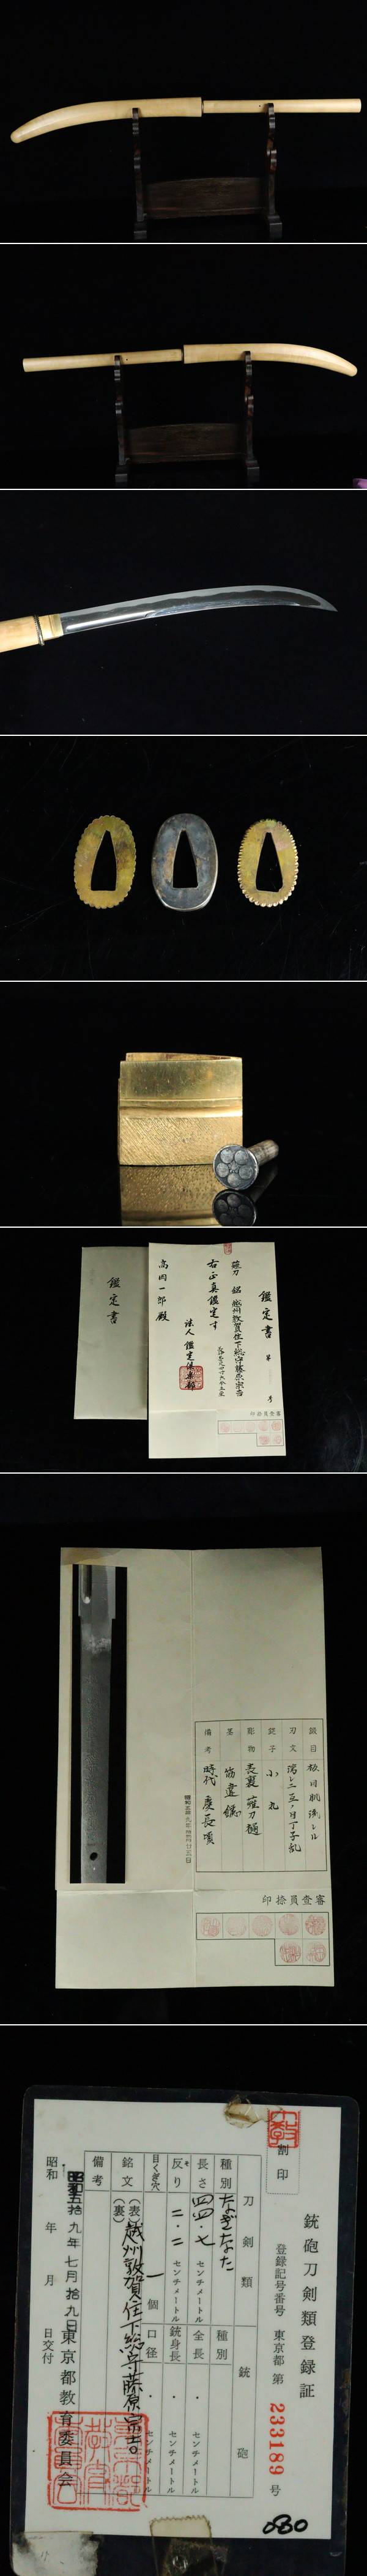 鑑定書
鑑定書
第 号
薙刀 銘 越州敦賀住下総守藤原宗吉
右正真鑑定ス
法人
高内一郎殿
審査員捺印
鍛目 板目肌流レル
刃文 湾レニ互ノ目丁子乱
鋩子 小丸
彫物 表裏薙刀樋
茎 筋違鑢
備考 時代 慶長頃
審査員捺印
銃砲刀剣類登録証
割印
登録記号番号 東京都 第 233189 号
刀剣類
銃砲
種別 なぎなた
種別
長さ 四四・七 センチメートル
全長 ・ センチメートル
反り 二・二 センチメートル
銃身長 ・ センチメートル
目くぎ穴 一 個
口径 ・ センチメートル
銘文 (表) 越州敦賀住下総守藤原宗吉
(裏)
備考
昭和五拾九年七月拾九日
昭和 年 月 日交付
東京都教育委員会
080